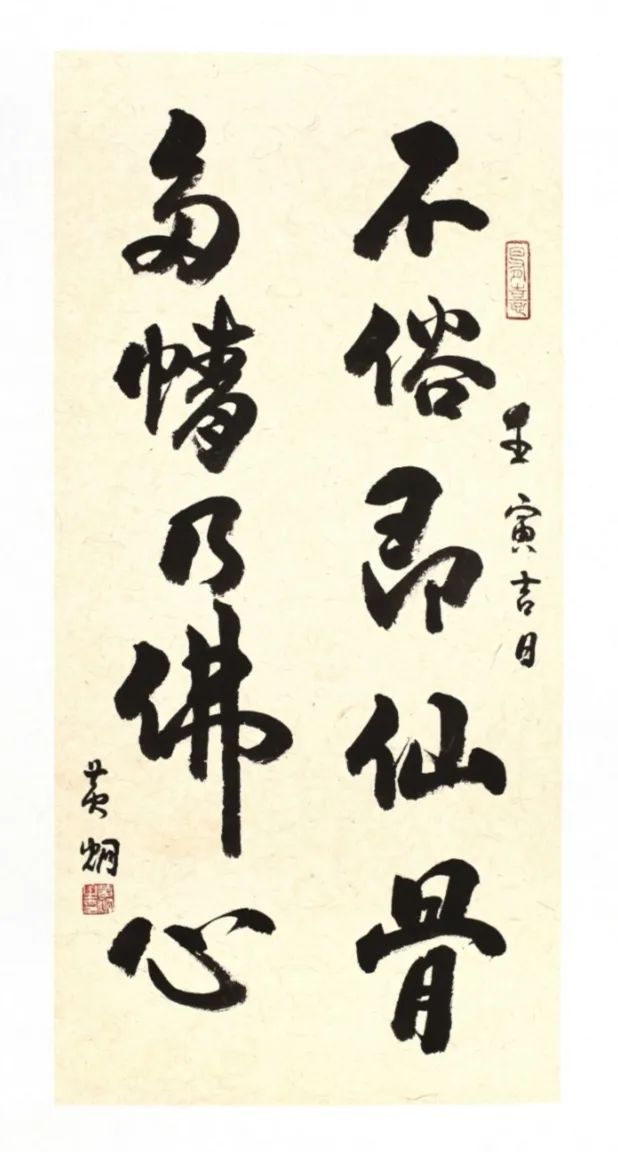 壬寅吉日
不俗即仙骨
多情乃佛心
黄炯